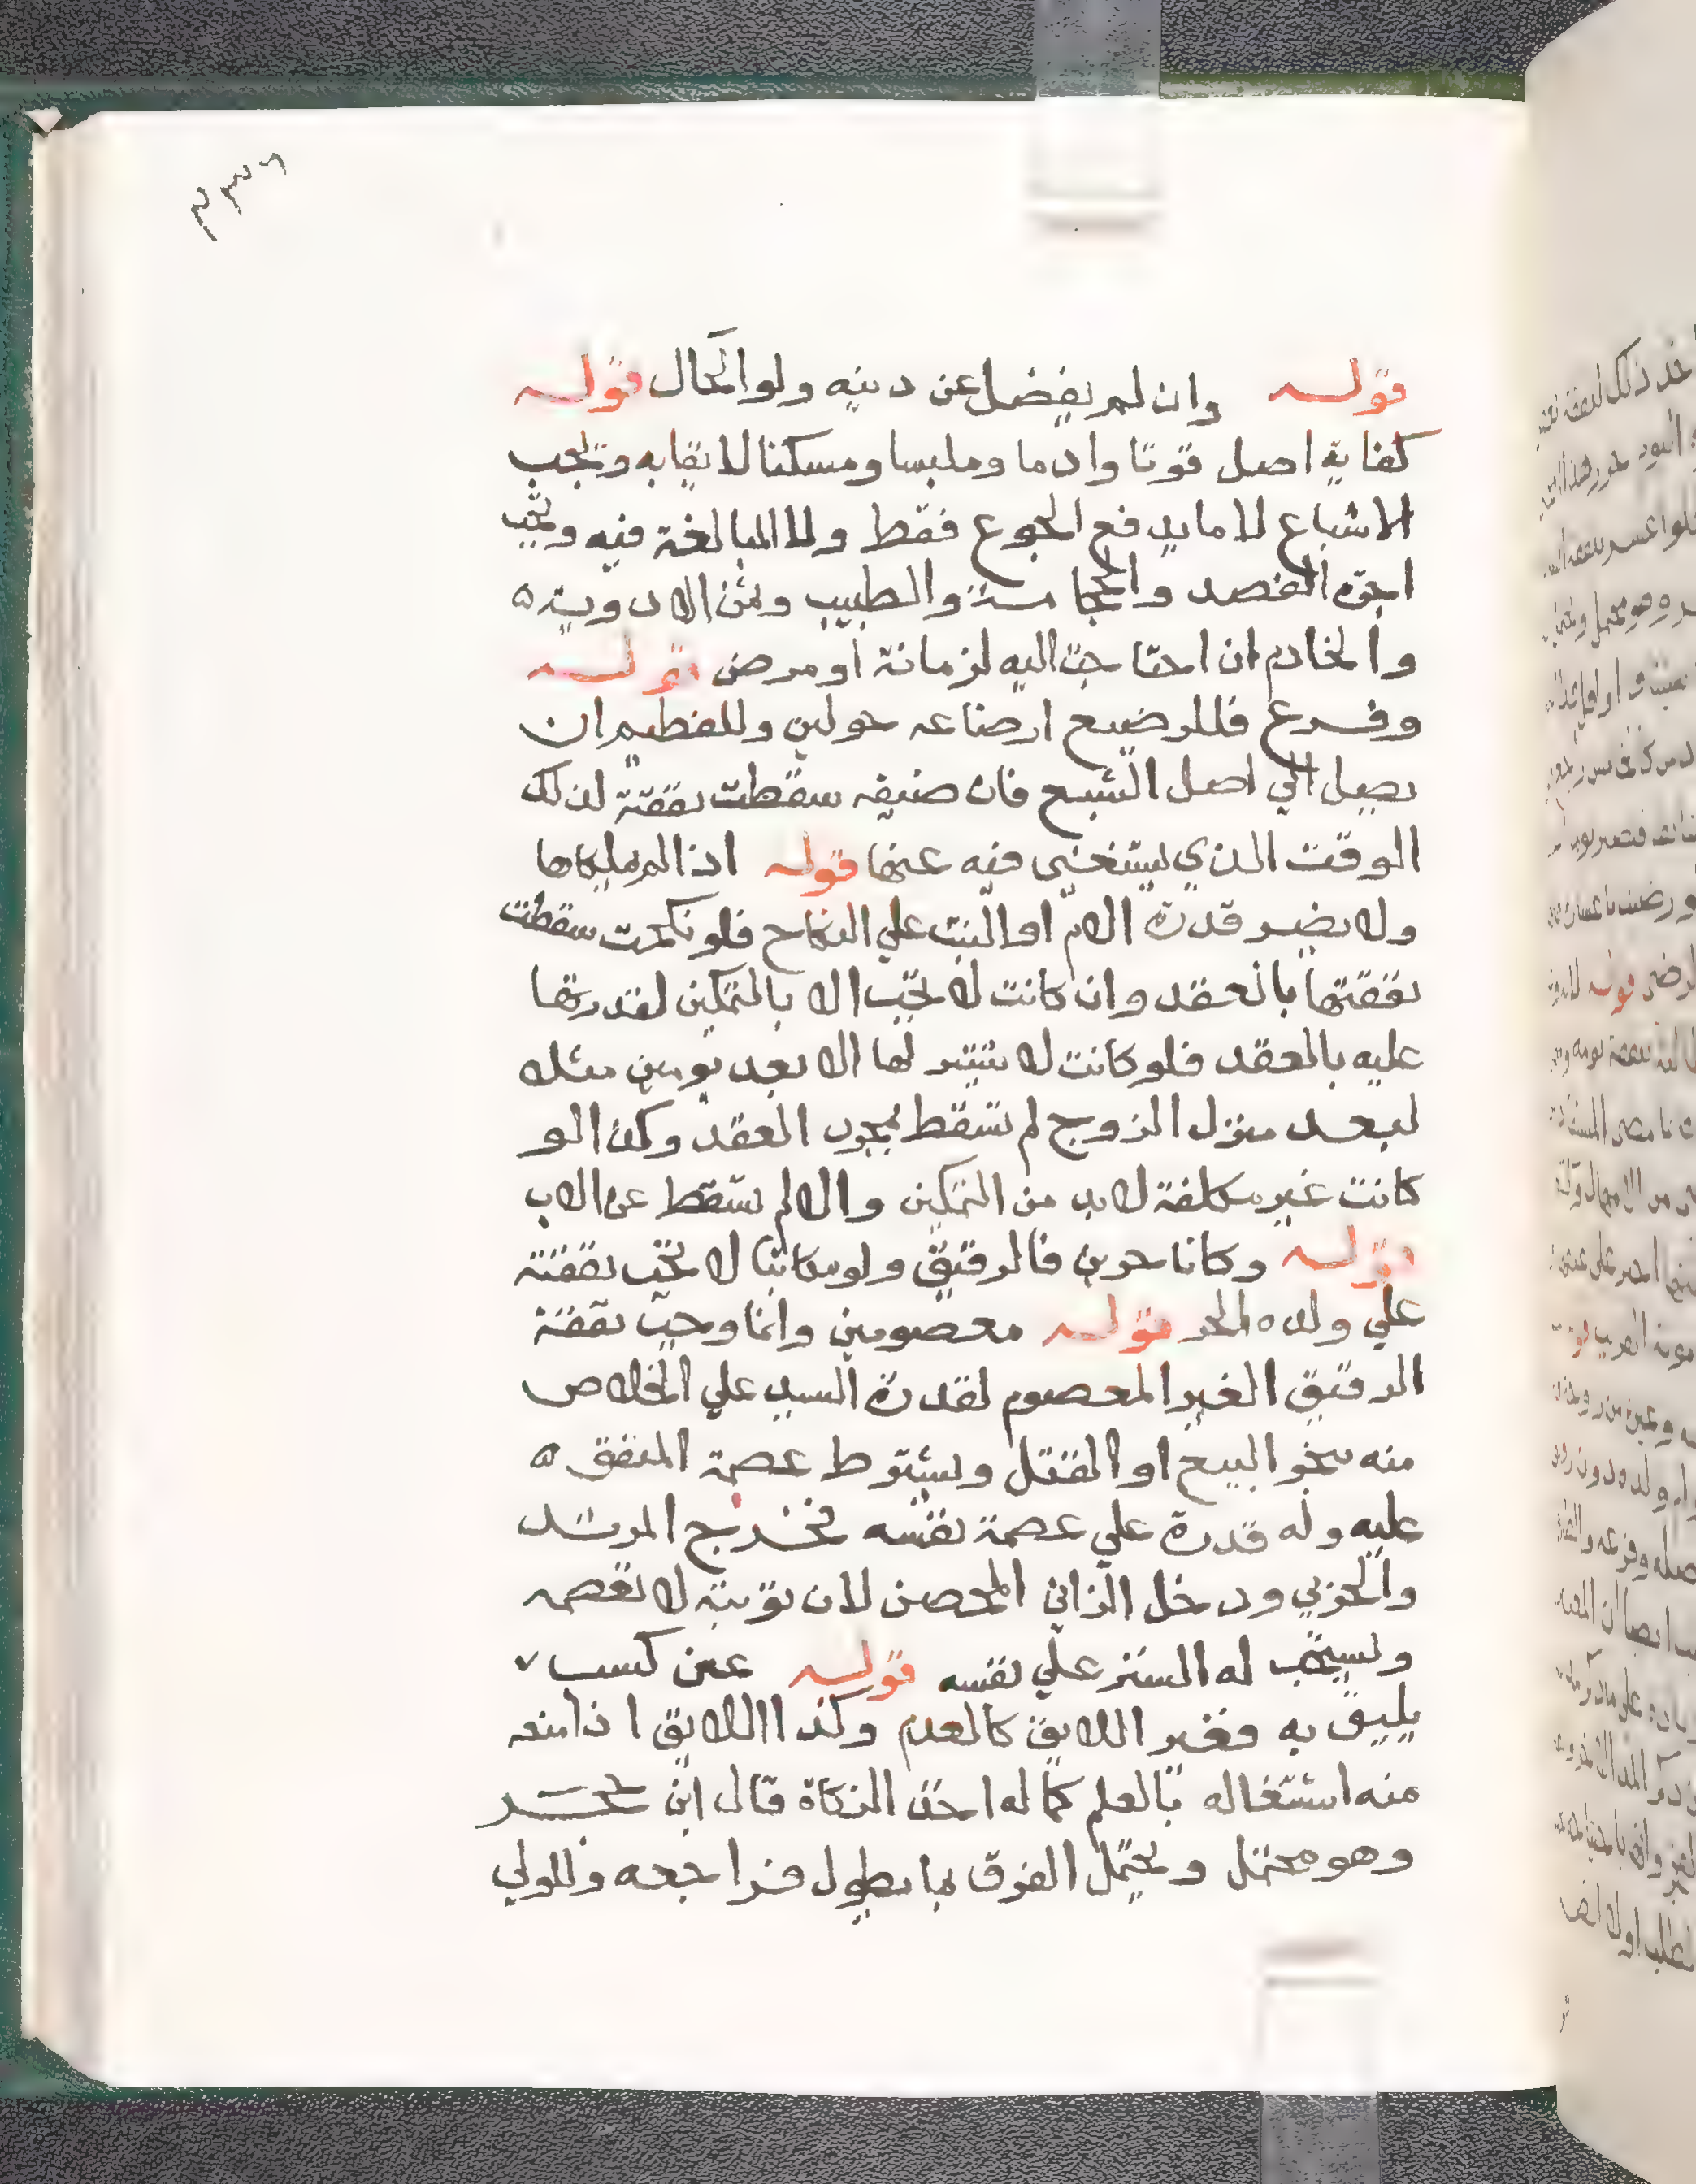 ٢٣٦
قوله وان لم يفضل عن دينه ولو الحال قوله
كفاية اصل قوتا وادما وملبسا ومسكنا لايقا به وتجب
الاشباع لا ما يدفع الجوع فقط ولا المبالغة فيه وتجب
اجرة الفصد والحجامة والطبيب وثمن الادوية ه
والخادم ان احتاجت اليه لزمانة او مرض قوله
وفرع فللرضيع ارضاعه حولين وللفطيم ان
يصل الي اصل الشبع فان ضيفه سقطت نفقته لذلك
الوقت الذي يستغني فيه عنها قوله اذا لم يملكاها
ولا يضر قدرة الام او البنت علي النكاح فلو نكحت سقطت
نفقتها بالعقد وان كانت لا تجب الا بالتمكين لقدرتها
عليه بالعقد فلو كانت لا تتيسر لها الا بعد يومين مثلا
لبعد منزل الزوج لم تسقط بمجرد العقد وكذا لو
كانت غير مكلفة لابد من التمكين والا لم تسقط عن الاب
قوله وكانا حرين فالرقيق ولو مكاتبا لا تجب نفقته
علي ولده الحر قوله معصومين وانما وجبت نفقة
الرقيق الغير المعصوم لقدرة السيد علي الخلاص
منه بنحو البيع او القتل ويشترط عصمة المنفق ه
عليه وله قدرة علي عصمة نفسه فخرج المرتد
والحربي ودخل الزاني المحصن لان توبته لا تعصمه
ويستحب له الستر علي نفسه قوله عن كسب ٧
يليق به فغير اللايق كالعدم وكذا اللايق اذا منعه
منه اشتغاله بالعلم كما له اخذ الزكاة قال ابن حجر
وهو محتمل ويحتمل الفرق بما يطول فراجعه وللولي